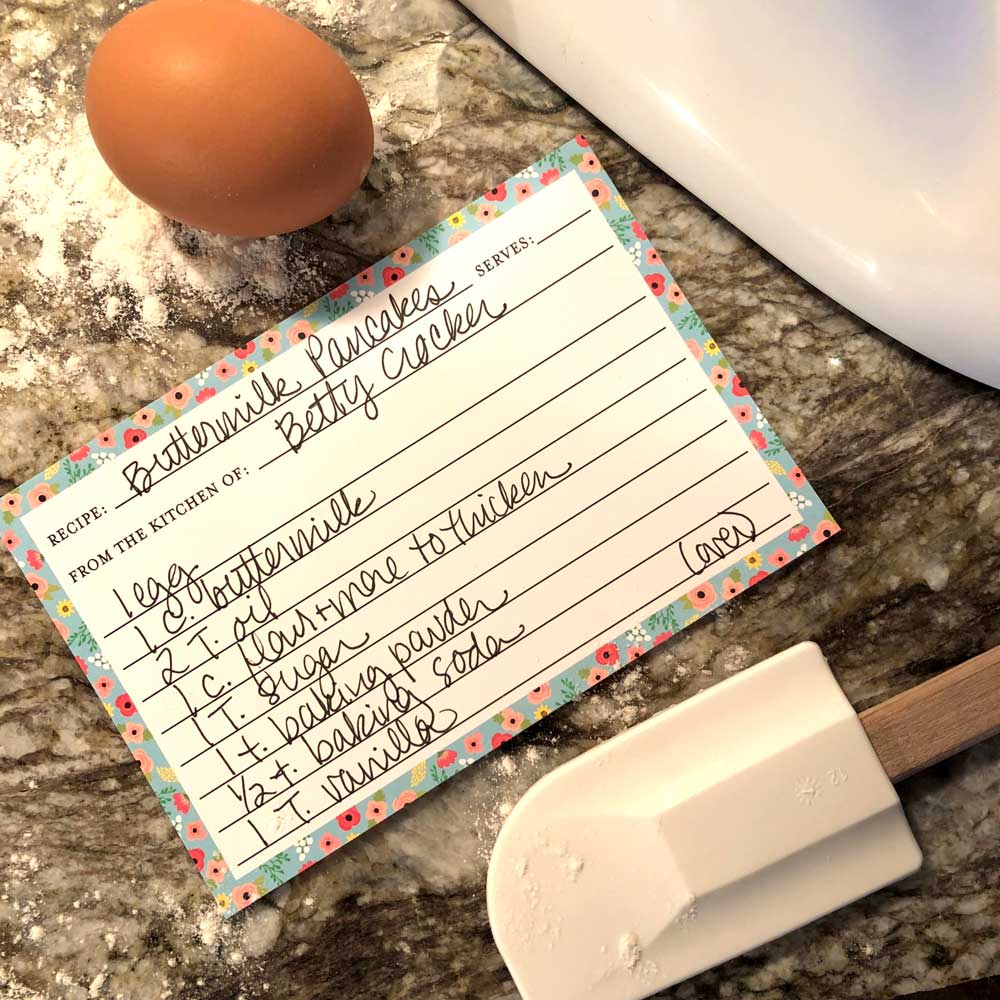 RECIPE: Buttermilk Pancakes SERVES:
FROM THE KITCHEN OF: Betty Crocker
1 egg
1 C. buttermilk
2 T. oil
1 c. flour + more to thicken
1 T. sugar
1 t. baking powder
1/2 t. baking soda
1 T. vanilla
(over)
12